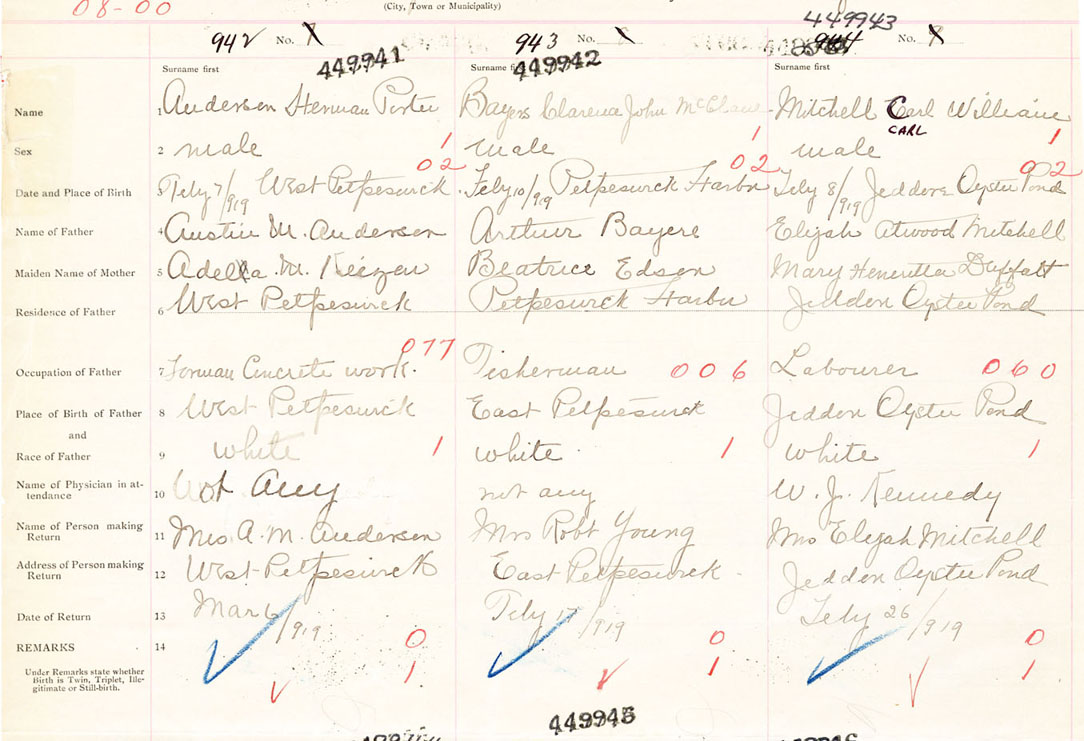 08-00
(City, Town or Municipality)
942 No. 943 No. 449943 No.
449941 449942
Surname first Surname first Surname first
Name 1 Anderson Herman Porter Bayers Clarence John Mitchell Carl William
CARL
Sex 2 male 1 male 1 male 1
02 02 02
Date and Place of Birth 3 Feby 7/919 West Petpeswick Feby 10/919 Petpeswick Harbor Feby 8/919 Jeddore Oyster Pond
Name of Father 4 Austin M. Anderson Arthur Bayers Elijah Atwood Mitchell
Maiden Name of Mother 5 Adella M. Beatrice Edson Mary Henrietta
Residence of Father 6 West Petpeswick Petpeswick Harbor Jeddore Oyster Pond
077
Occupation of Father 7 Forman Concrete work. Fisherman 006 Labourer 060
Place of Birth of Father 8 West Petpeswick East Petpeswick Jeddore Oyster Pond
and
Race of Father 9 white 1 white 1 white 1
Name of Physician in at-
tendance 10 Not Any not any W. J. Kennedy
Name of Person making
Return 11 Mrs A. M. Anderson Mrs Robt Young Mrs Elijah Mitchell
Address of Person making
Return 12 West Petpeswick East Petpeswick Jeddore Oyster Pond
Date of Return 13 Mar 6/919 Feby 17/919 Feby 26/919
REMARKS 14 0 0 0
Under Remarks state whether
Birth is Twin, Triplet, Ille-
gitimate or Still-birth. 1 1 1
449945